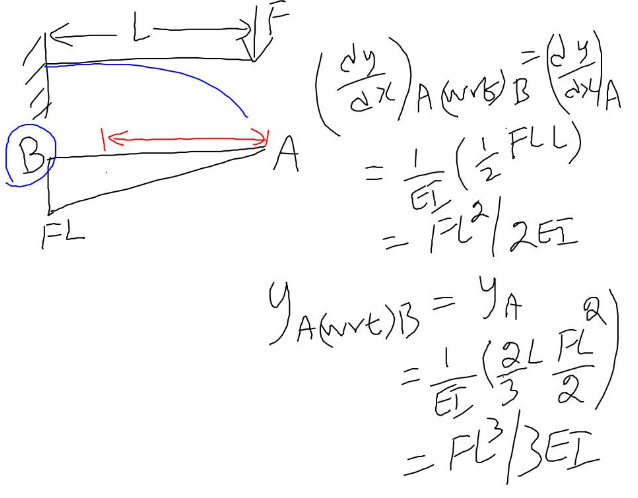 L F
B A
FL
(dy/dx)A(wrt)B = (dy/dx)A
= 1/EI (1/2 FLL)
= FL²/2EI
yA(wrt)B = yA
= 1/EI (2L/3 FL²/2)
= FL³/3EI